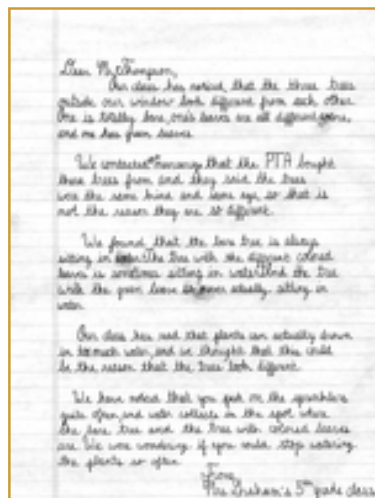 Dear Mr. Thompson,
Our class has noticed that the three trees
outside our window look different from each other.
One is totally bare, one's leaves are all different colors,
and one has green leaves.
We contacted nursery that the PTA bought
these trees from and they said the trees
were the same kind and same age, so that is
not the reason they are so different.
We found that the bare tree is always
sitting in water. The tree with the different colored
leaves is sometimes sitting in water. And the tree
with the green leaves is never actually sitting in
water.
Our class has read that plants can actually drown
in too much water, and we thought that this could
be the reason that the trees look different.
We have noticed that you put on the sprinklers
quite often and water collects in the spot where
the bare tree and the tree with colored leaves
are. We were wondering if you could stop watering
the plants so often.
From,
Mrs. Graham's 5th grade class